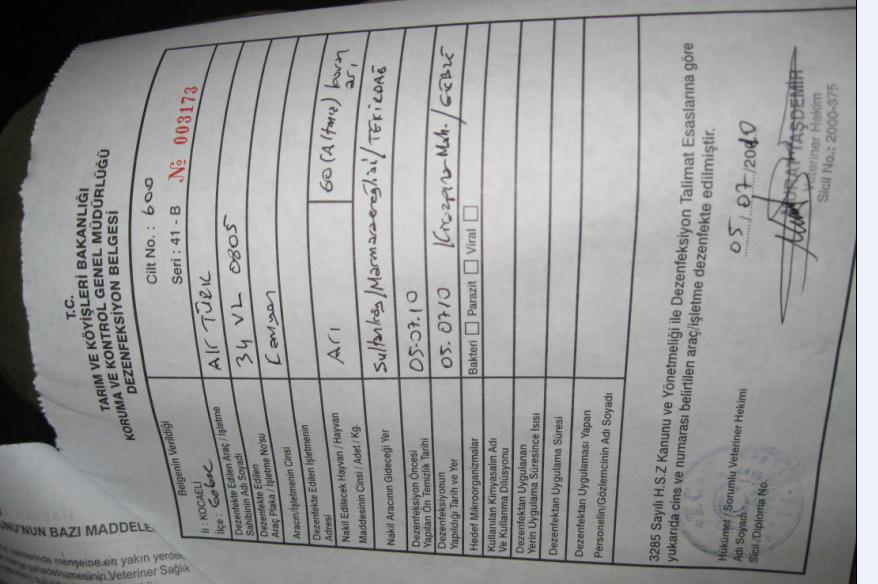 T.C.
TARIM VE KÖYİŞLERİ BAKANLIĞI
KORUMA VE KONTROL GENEL MÜDÜRLÜĞÜ
DEZENFEKSİYON BELGESİ
Belgenin Verildiği
İl : KOCAELİ
İlçe : Gebze
Cilt No. : 600
Seri : 41 - B № 003173
Dezenfekte Edilen Araç / İşletme
Sahibinin Adı Soyadı
ALİ TÜRK
Dezenfekte Edilen
Araç Plaka / İşletme No'su
34 VL 0805
Aracın/İşletmenin Cinsi
Kamyon
Dezenfekte Edilen İşletmenin
Adresi
Nakil Edilecek Hayvan / Hayvan
Maddesinin Cinsi / Adet / Kg.
Arı
60 (Altmış) kovan
arı
Nakil Aracının Gideceği Yer
Sultanköy/Marmaraereğlisi/TEKİRDAĞ
Dezenfeksiyon Öncesi
Yapılan Ön Temizlik Tarihi
05.07.10
Dezenfeksiyonun
Yapıldığı Tarih ve Yer
05.07.10 Mah. / GEBZE
Hedef Mikroorganizmalar
Bakteri Parazit Viral
Kullanılan Kimyasalın Adı
Ve Kullanma Dilüsyonu
Dezenfektan Uygulanan
Yerin Uygulama Süresince Isısı
Dezenfektan Uygulama Süresi
Dezenfektan Uygulaması Yapan
Personelin/Gözlemcinin Adı Soyadı
3285 Sayılı H.S.Z Kanunu ve Yönetmeliği ile Dezenfeksiyon Talimat Esaslarına göre
yukarıda cins ve numarası belirtilen araç/işletme dezenfekte edilmiştir.
05/07/2010
Hükümet / Sorumlu Veteriner Hekimi
Adı Soyadı
Sicil /Diploma No.
TAŞDEMİR
Veteriner Hekim
Sicil No.: 2000-375
NUN'UN BAZI MADDELE
menşeine en yakın yerde
Veteriner Sağlık